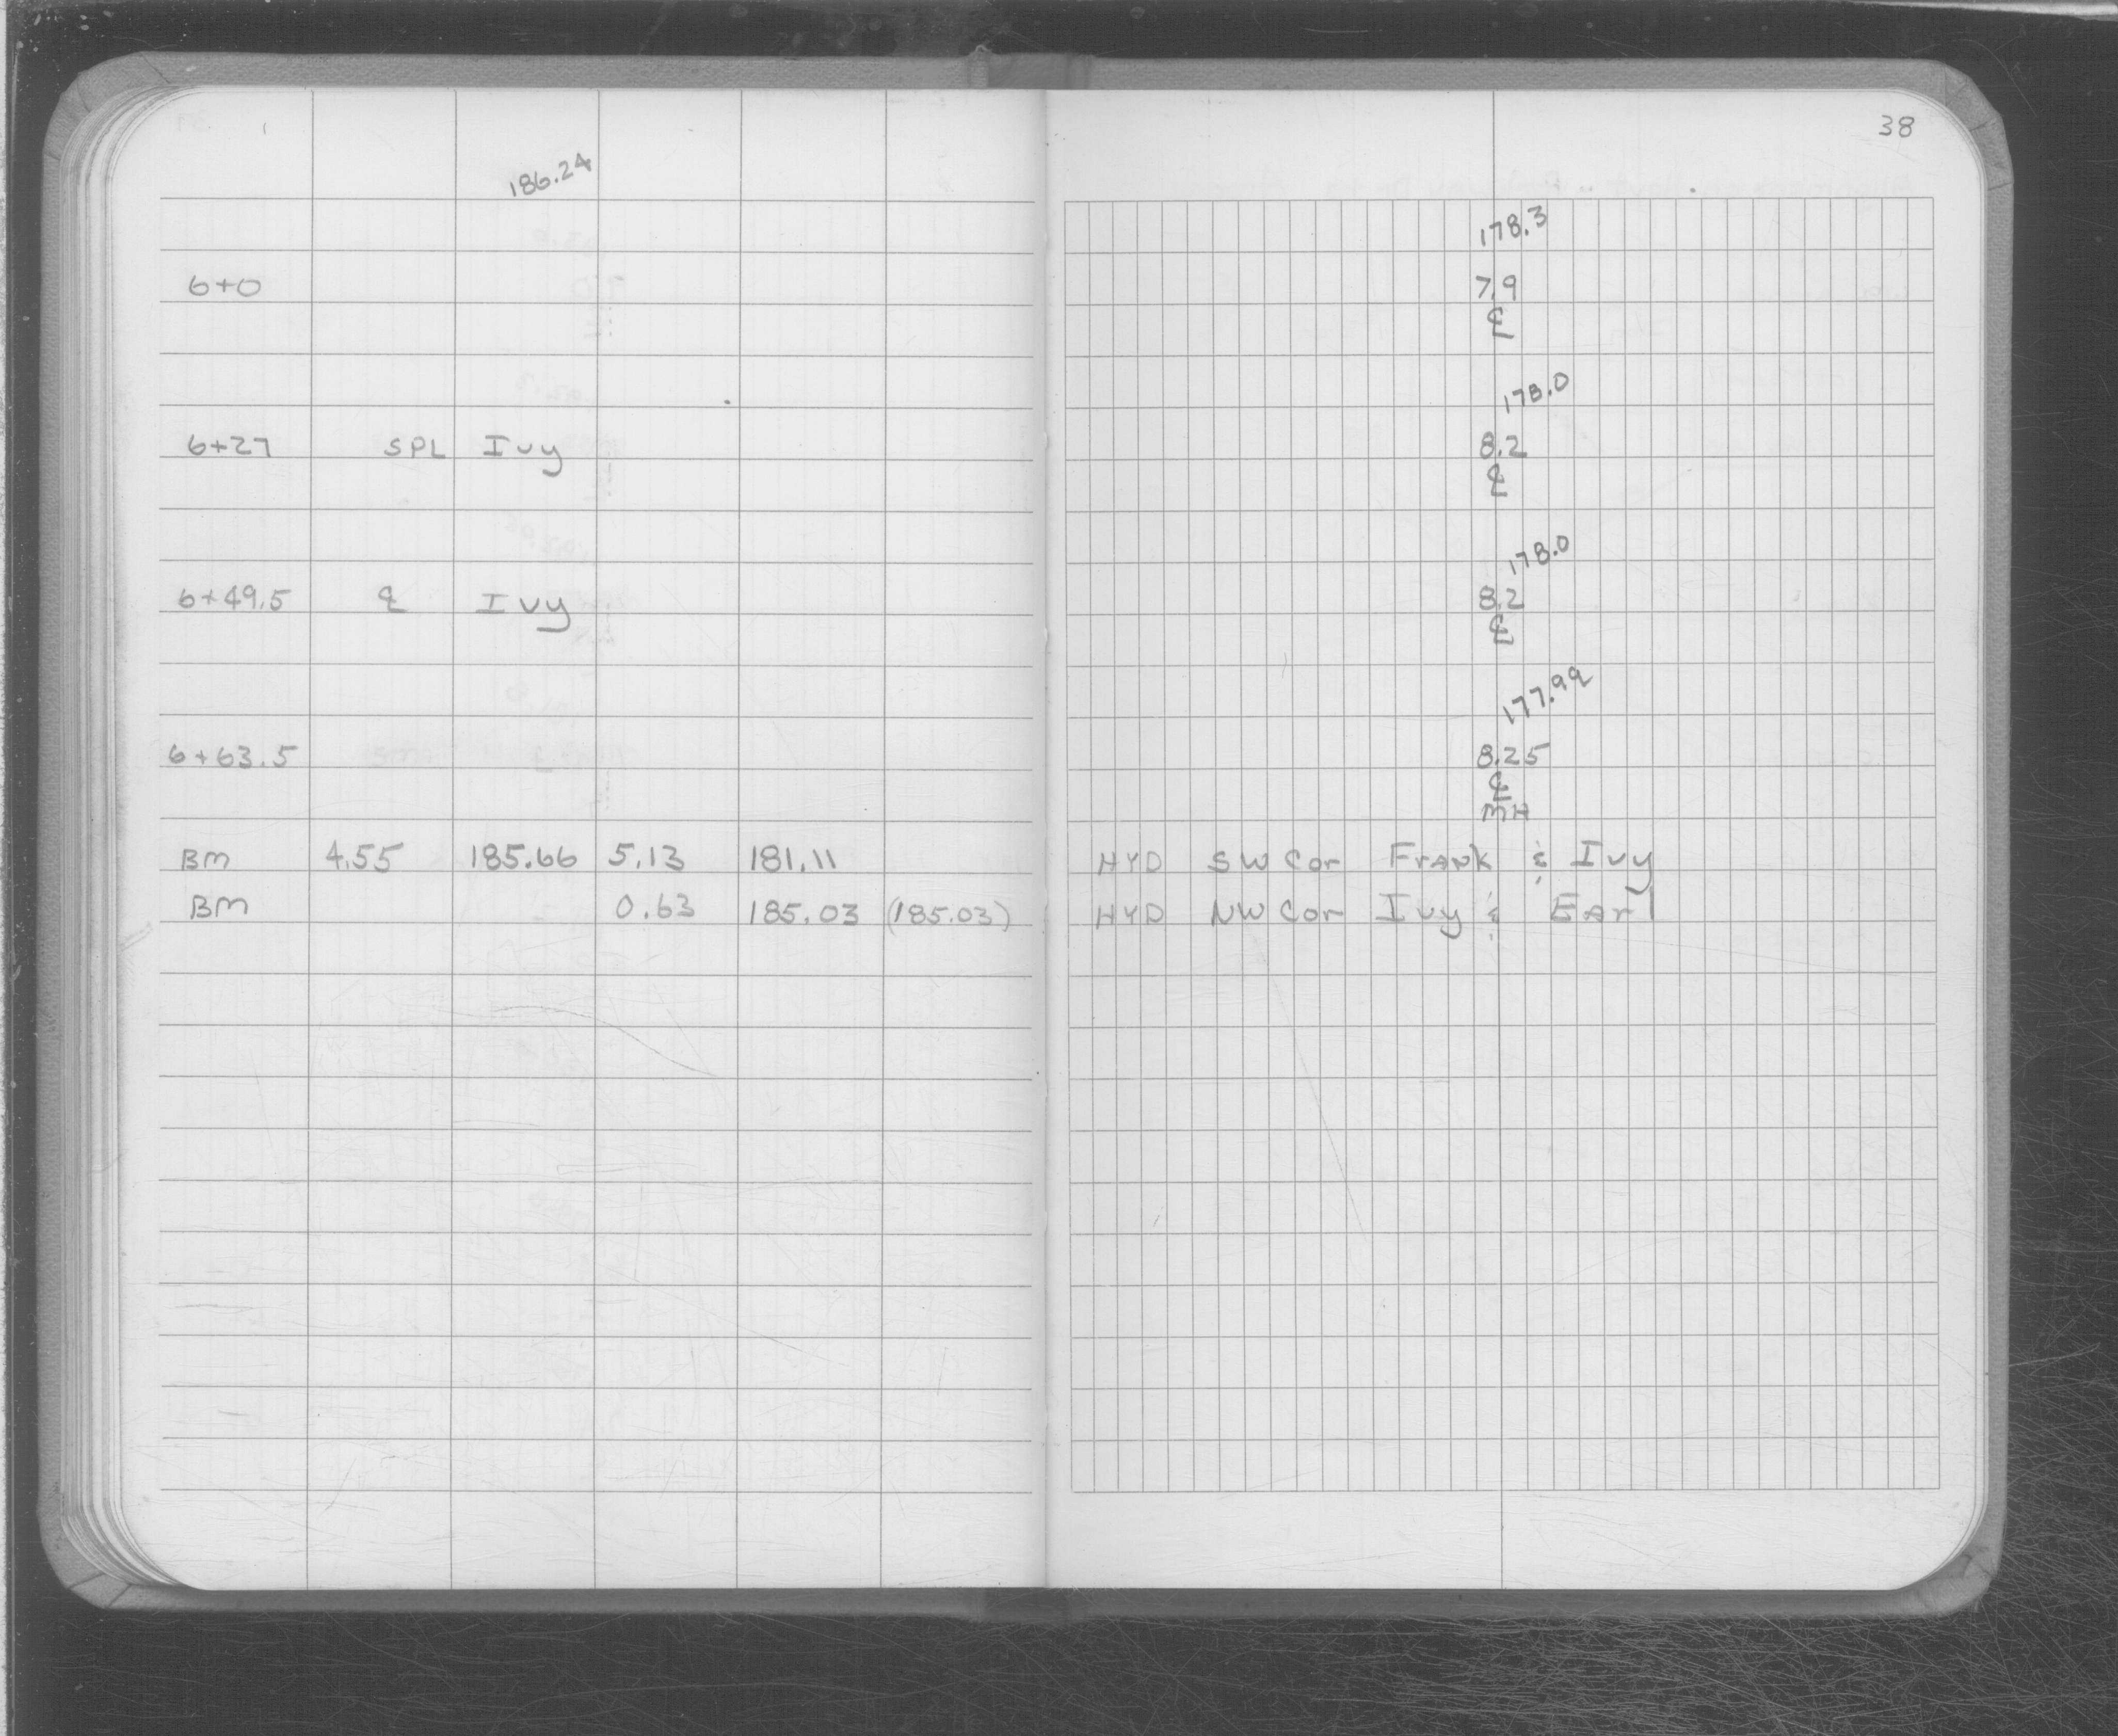 38
186.24
178.3
6+0 7.9
℄
178.0
6+27 SPL Ivy 8.2
℄
178.0
6+49.5 ℄ Ivy 8.2
℄
177.99
6+63.5 8.25
℄
MH
BM 4.55 185.66 5.13 181.11 HYD SW Cor Frank & Ivy
BM 0.63 185.03 (185.03) HYD NW Cor Ivy & Earl